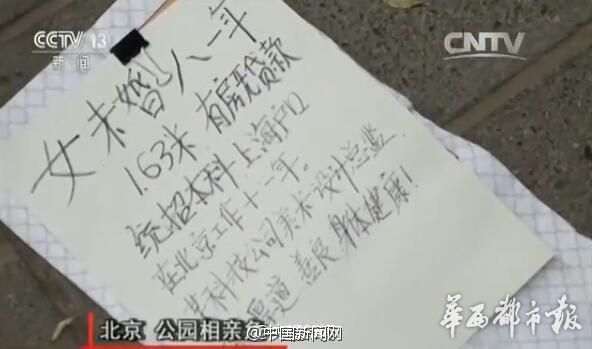 CCTV 13
新闻
CNTV
女未婚 八一年
1.63米 有房无贷款
统招本科 上海户口
在北京工作十一年。
某科技公司美术设计总监
厚道 善良 身体健康!
北京 公园相亲
@中国新闻网
华西都市报